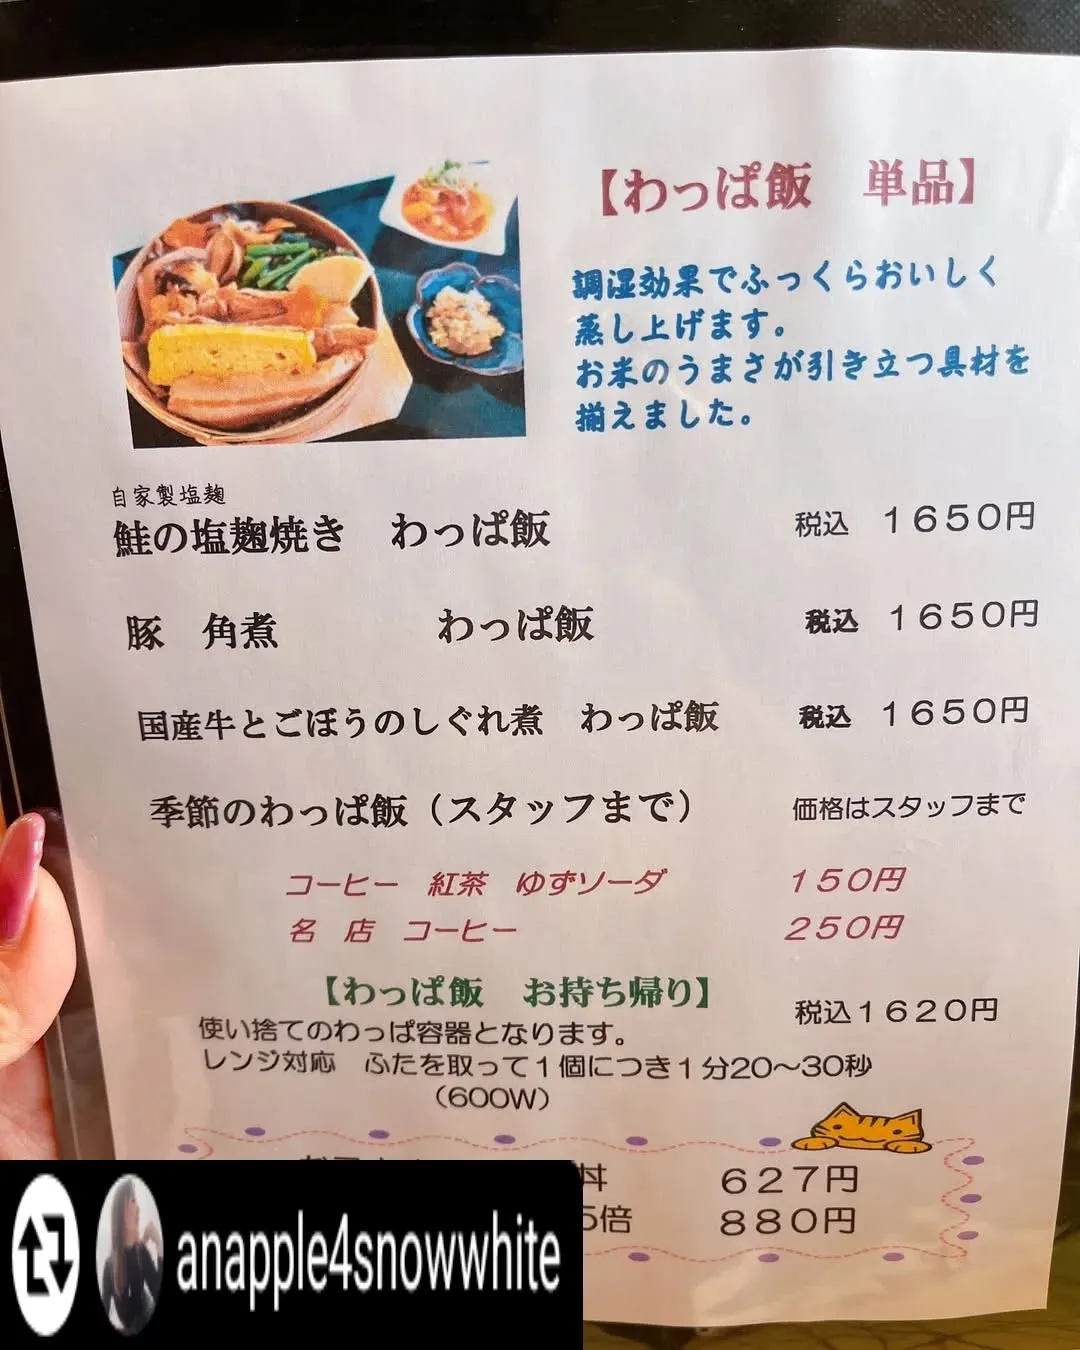 【わっぱ飯　単品】
調湿効果でふっくらおいしく
蒸し上げます。
お米のうまさが引き立つ具材を
揃えました。
自家製塩麹
鮭の塩麹焼き　わっぱ飯　税込　1650円
豚　角煮　わっぱ飯　税込　1650円
国産牛とごぼうのしぐれ煮　わっぱ飯　税込　1650円
季節のわっぱ飯（スタッフまで）　価格はスタッフまで
コーヒー　紅茶　ゆずソーダ　150円
名　店　コーヒー　250円
【わっぱ飯　お持ち帰り】　税込1620円
使い捨てのわっぱ容器となります。
レンジ対応　ふたを取って1個につき1分20～30秒
（600W）
丼　627円
5倍　880円
anapple4snowwhite